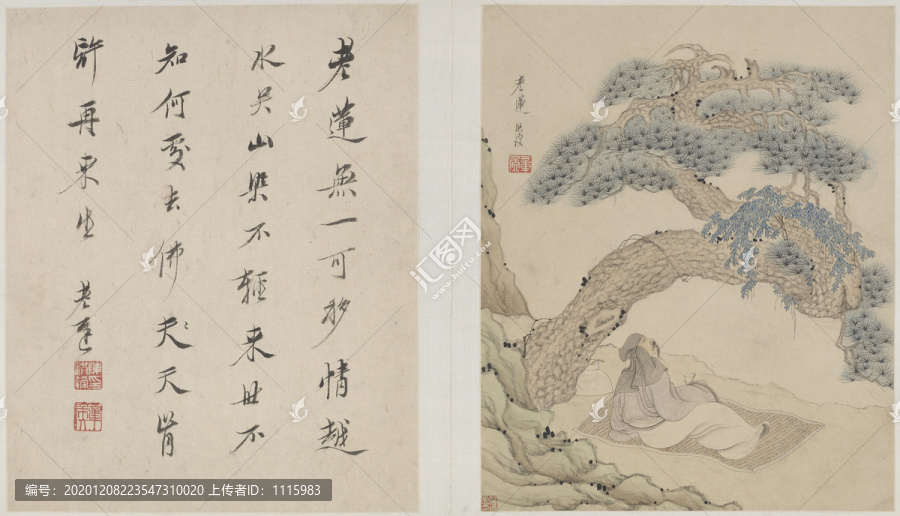 老蓮無一可移情越
水吳山染不輕来世不
知何處去佛夫天肯
許再来生 老蓮
老蓮 洪綬
汇图网
www.huitu.com
编号：20201208223547310020 上传者ID：1115983